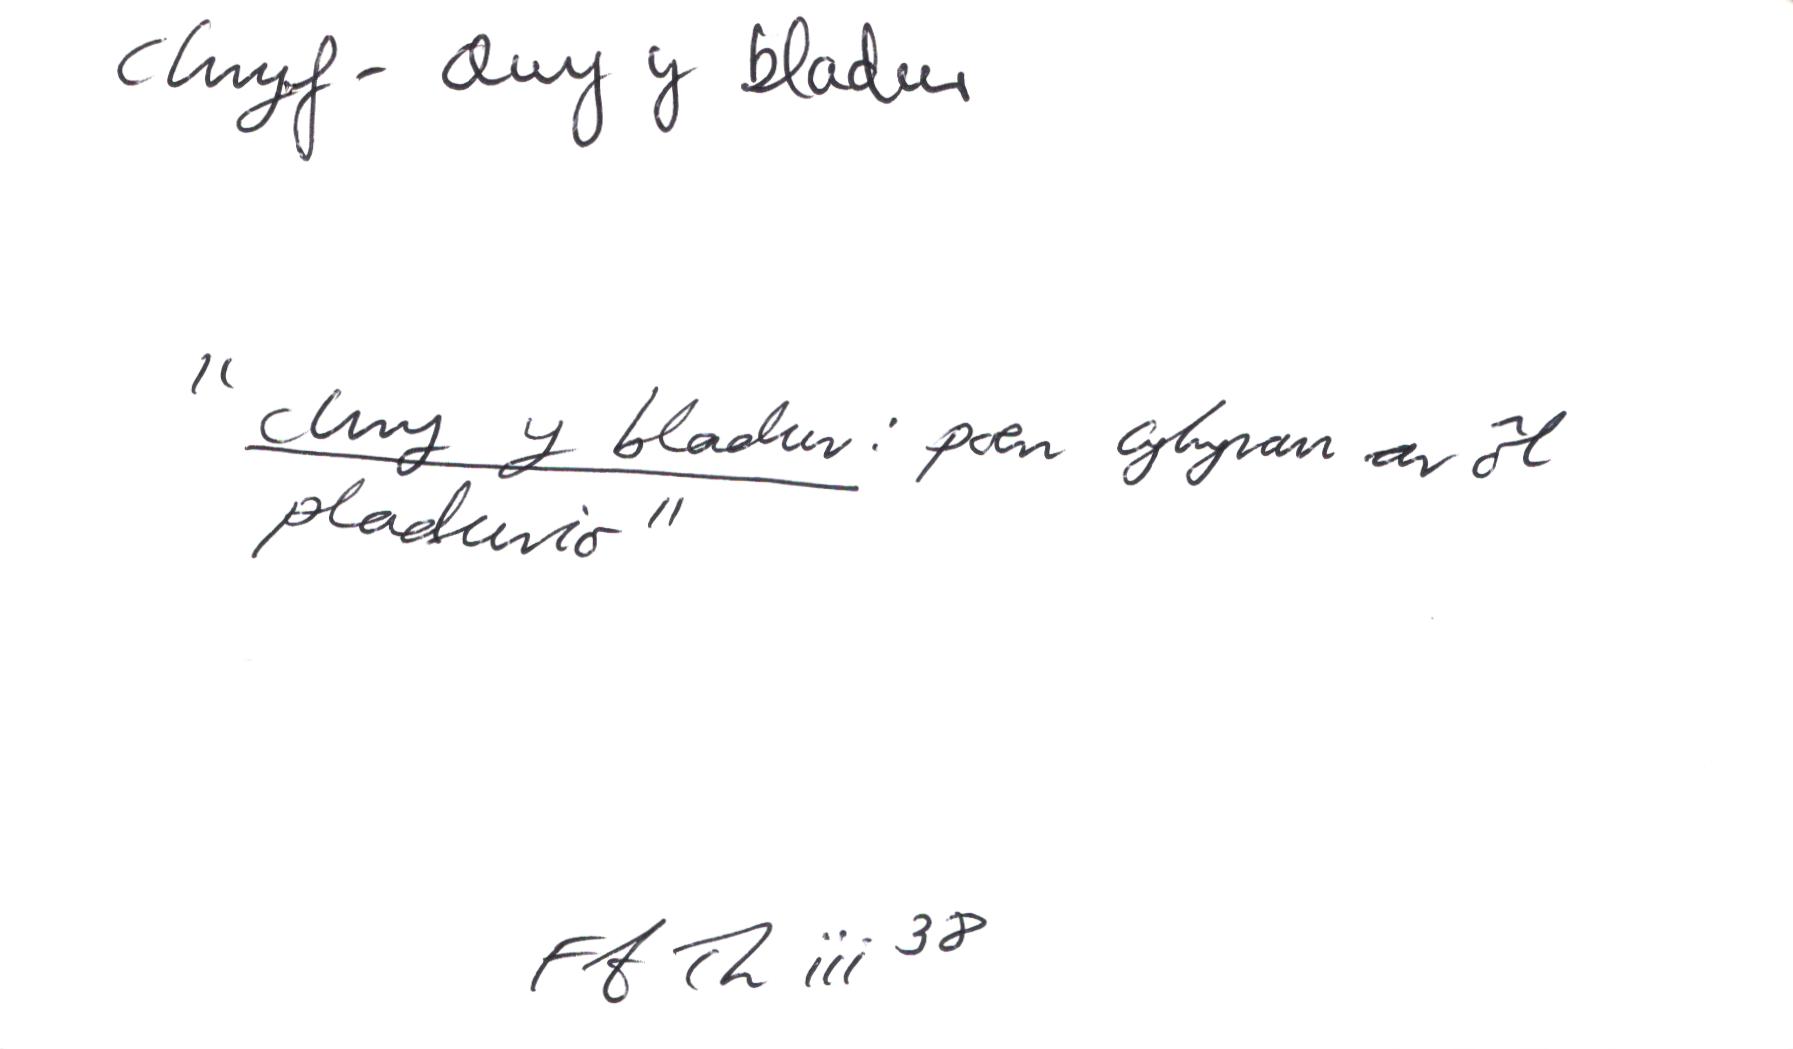 clwyf - Clwy y bladur
"clwy y bladur: poen cyhyrau ar ôl
pladurio"
Ff Th iii 38